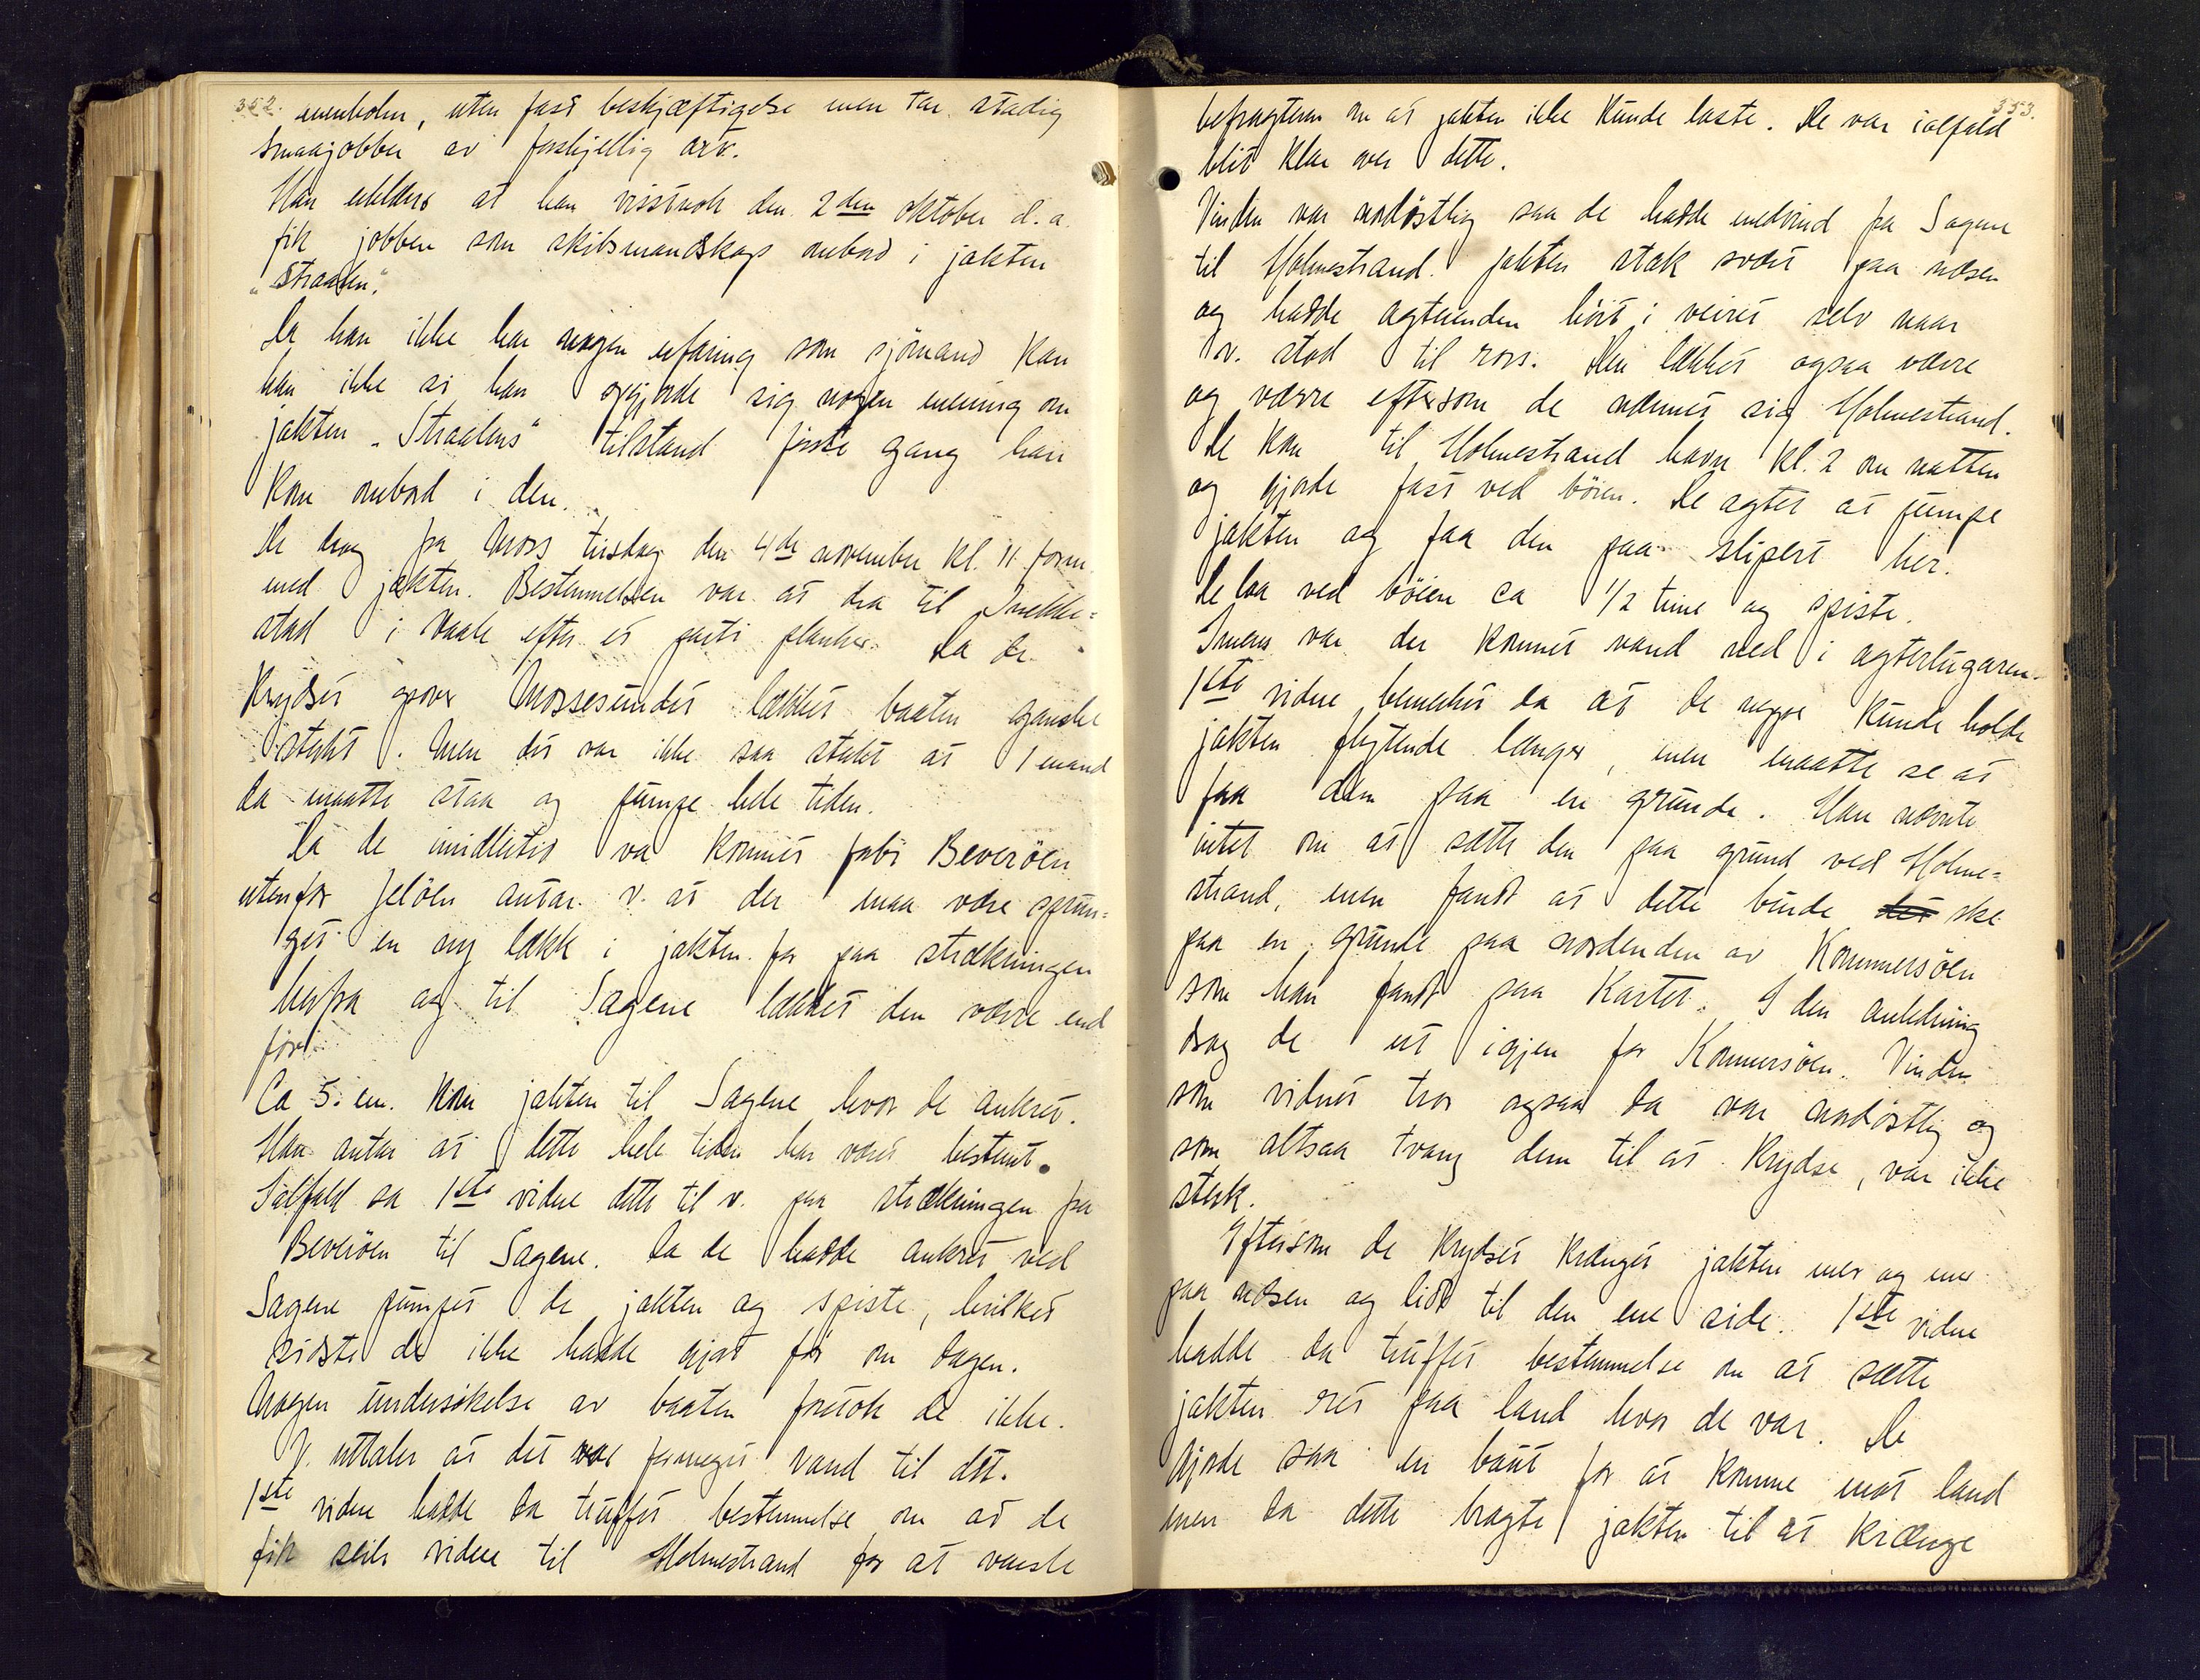 352.
uten fast beskjæftigelse men tar stadig
smaajobber av forskjellig art.
Han erklærer at han visstnok den 2den oktober d.a.
fik jobben som skibsmandskap ombord i jakten
"Straalen".
Da han ikke har nogen erfaring som sjømand kan
han ikke si han opgjorde sig nogen mening om
jakten "Straalens" tilstand første gang han
kom ombord i den.
De drog fra Moss tirsdag den 4de november kl. 11 form.
med jakten. Bestemmelsen var at dra til Snekke-
stad i Vaale efter et parti planker. Da de
krydset over Mossesundet lækket baaten ganske
sterkt. Men det var ikke saa sterkt at 1 mand
da maatte staa og pumpe hele tiden.
Da de imidlertid var kommet forbi Beverøen
utenfor Jeløen antar v. at der maa være sprun-
get en ny lækk i jakten for paa strækningen
herfra og til Sagene lækket den værre end
før.
Ca 5. em. kom jakten til Sagene hvor de ankret.
Han antar at dette hele tiden har været bestemt.
Ialfald sa 1ste vidne dette til v. paa strækningen fra
Beverøen til Sagene. Da de hadde ankret ved
Sagene pumpet de jakten og spiste, hvilket
sidste de ikke hadde gjort før om dagen.
Nogen undersøkelse av baaten foretok de ikke.
V. uttaler at det var formeget vand til det.
1ste vidne hadde da truffet bestemmelse om at de
fik seile videre til Holmestrand for at varsle
353.
befragteren om at jakten ikke kunde laste. De var ialfald
blit klar over dette.
Vinden var nordøstlig saa de hadde medvind fra Sagene
til Holmestrand. Jakten stak svært paa næsen
og hadde agterenden høit i veiret selv naar
v. stod til rors. Den lækket ogsaa værre
og værre eftersom de nærmet sig Holmestrand.
De kom til Holmestrand havn kl. 2 om natten
og gjorde fast ved bøien. De agtet at pumpe
jakten og faa den paa slipen her.
De laa ved bøien ca 1/2 time og spiste.
Imens var der kommet vand ned i agterlugaren.
1ste vidne bemerket da at de neppe kunde holde
jakten flytende længer, men maatte se at
faa den paa en grunde. Han nævnte
intet om at sætte den paa grund ved Holme-
strand, men fandt at dette burde det ske
paa en grunde paa nordenden av Kommersøen
som han fandt paa kartet. I den anledning
drog de ut igjen for Kommersøen. Vinden
som vidnet tror ogsaa da var nordøstlig og
som altsaa tvang dem til at krydse, var ikke
sterk.
Eftersom de krydset krænget jakten mer og mer
paa næsen og lidt til den ene side. 1ste vidne
hadde da truffet bestemmelse om at sætte
jakten ret paa land hvor de var. De
gjorde saa en baut for at komme mot land
men da dette bragte jakten til at krænge